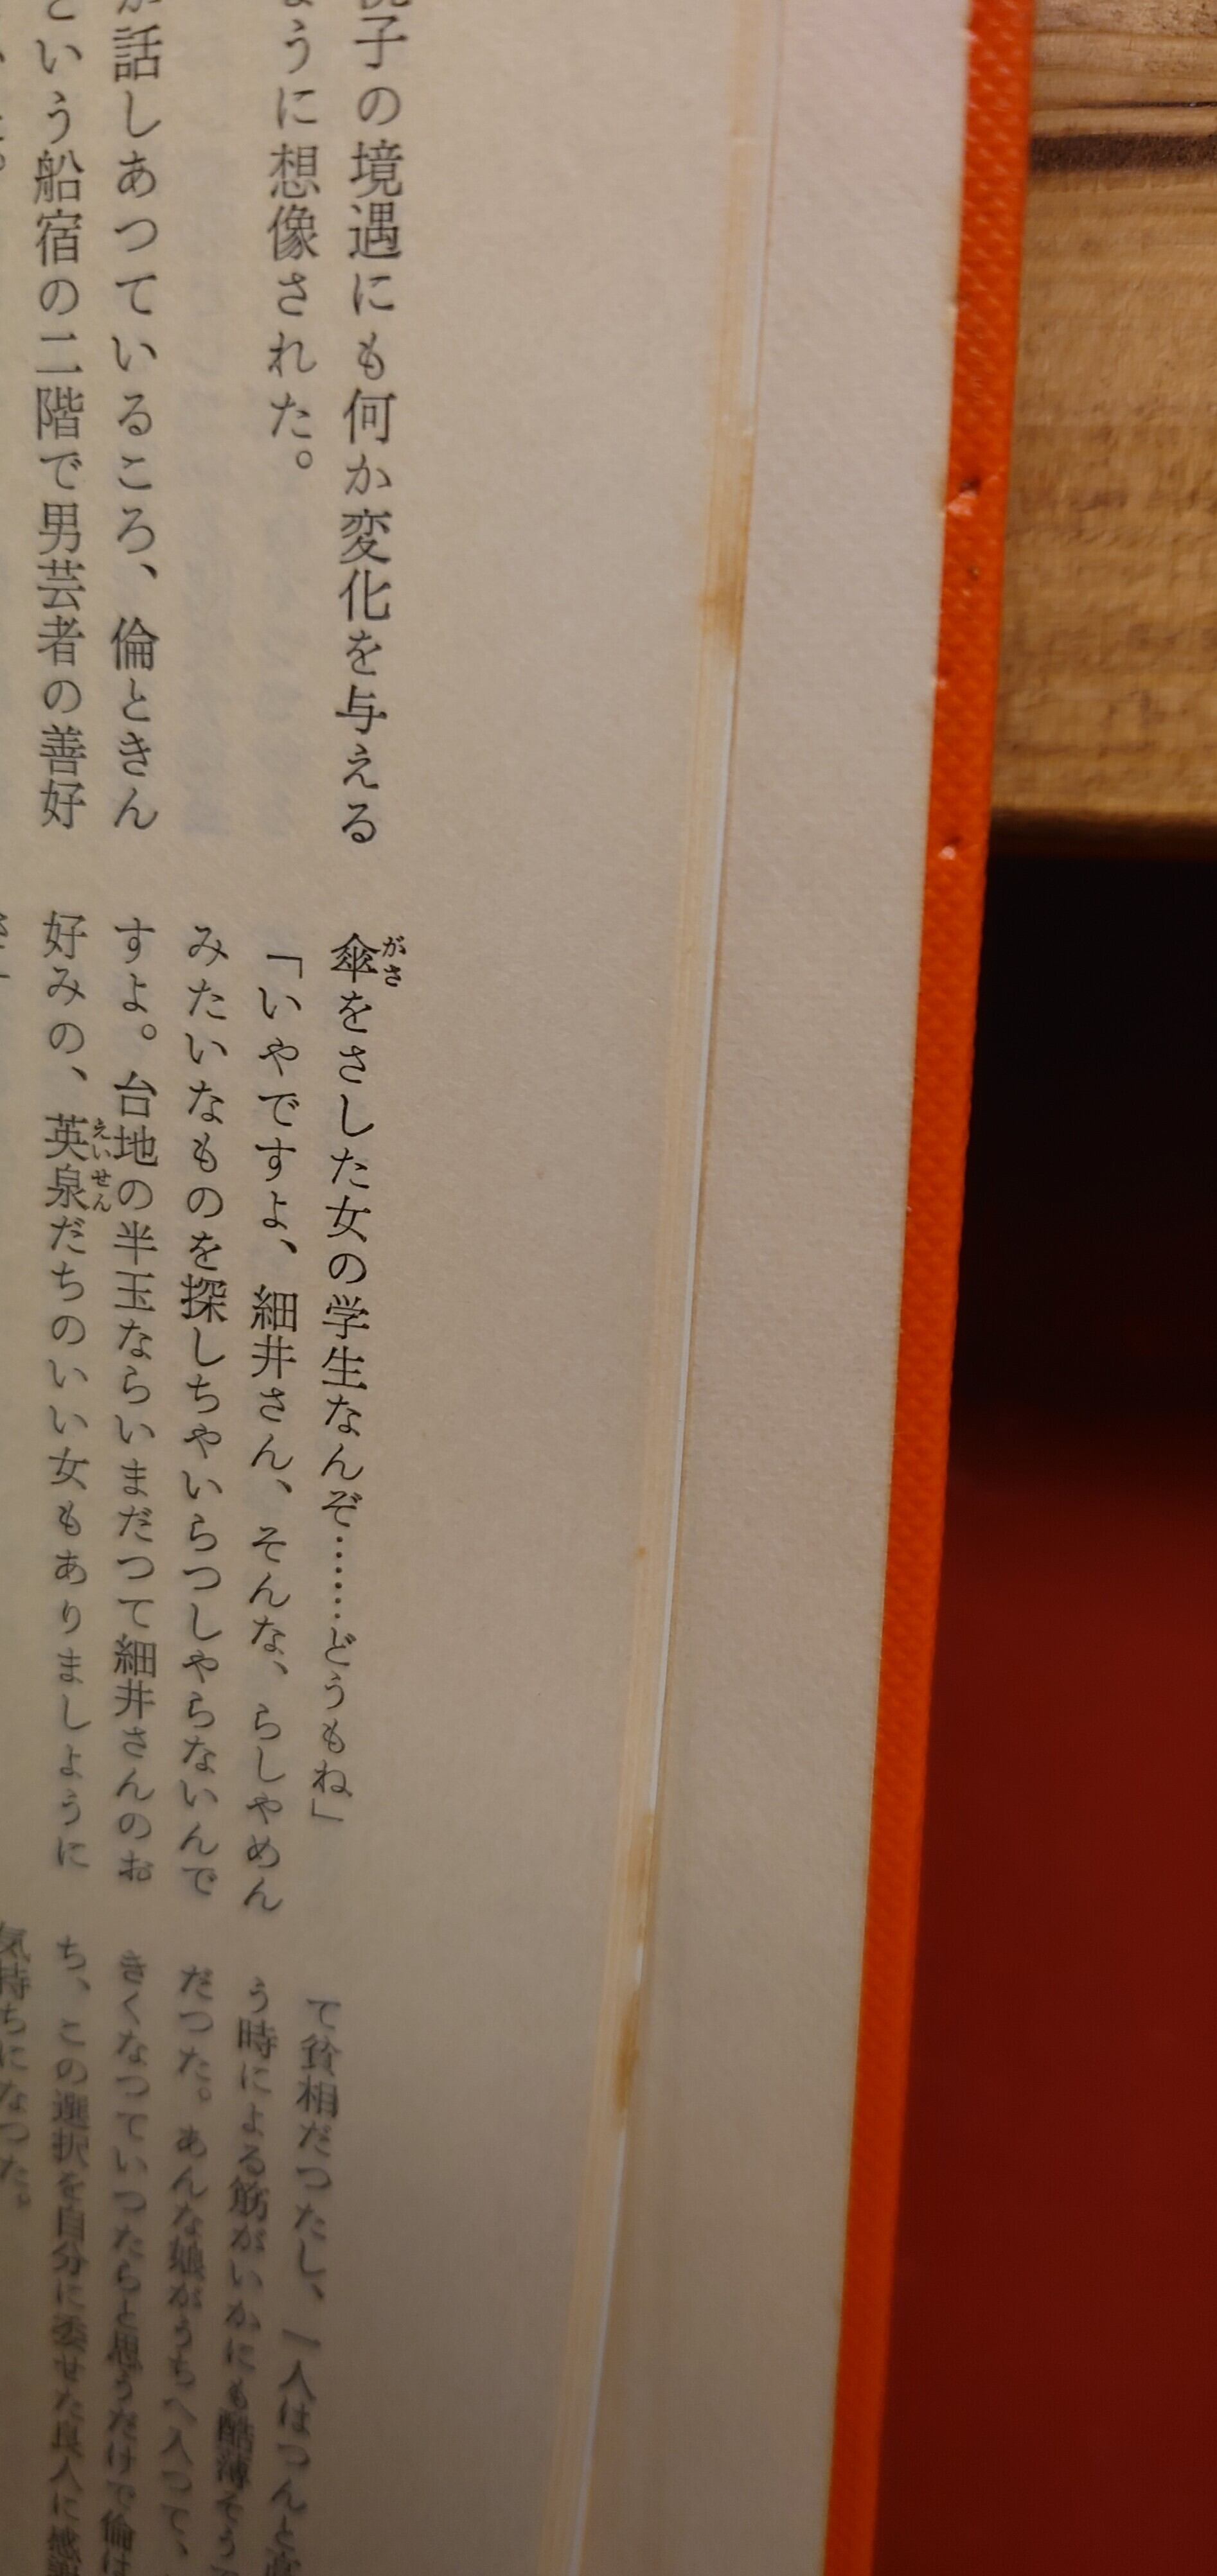 子の境遇にも何か変化を与える
うに想像された。
話しあつているころ、倫ときん
という船宿の二階で男芸者の善好
傘をさした女の学生なんぞ……どうもね」
がさ
「いやですよ、細井さん、そんな、らしやめん
みたいなものを探しちやいらつしやらないんで
すよ。台地の半玉ならいまだつて細井さんのお
好みの、英泉だちのいい女もありましように
えいせん
て貧相だつたし、一人はつんと
う時による筋がいかにも酷薄そう
だつた。あんな娘がうちへ入つて、
きくなつていつたらと思うだけで倫は
ち、この選択を自分に委せた良人に感
気持ちになつた。